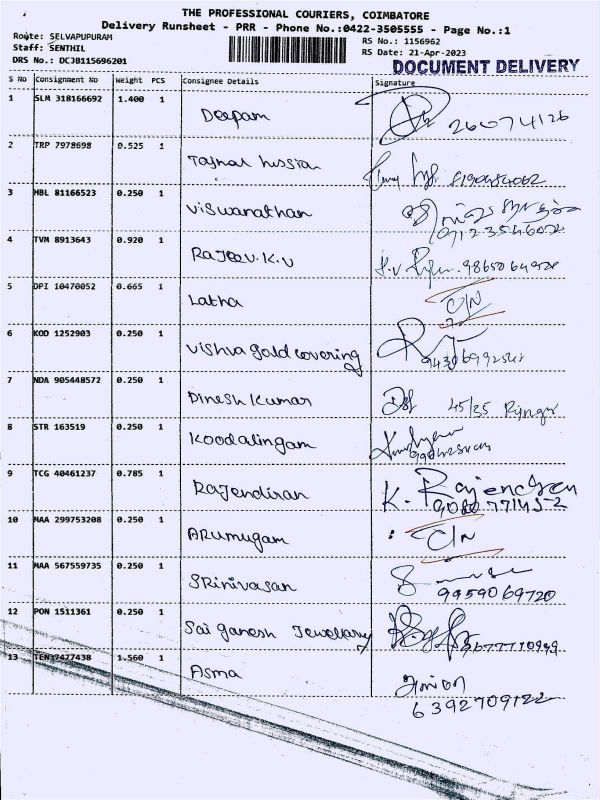 THE PROFESSIONAL COURIERS, COIMBATORE
Delivery Runsheet - PRR - Phone No.:0422-3505555 - Page No.:1
Route: SELVAPUPURAM
RS No.: 1156962
Staff: SENTHIL
RS Date: 21-Apr-2023
DRS No.: DCJB115696201
DOCUMENT DELIVERY
S No Consignment No Weight PCS Consignee Details Signature
1 SLM 318166692 1.400 1 Deepam 26074126
2 TRP 7978698 0.525 1 Tajmal hussia
3 HBL 81166523 0.250 1 Viswanathan
4 TVM 8913643 0.920 1 Rajeev.K.V
5 DPI 10470052 0.665 1 Latha C/N
6 KOD 1252903 0.250 1 Vishva gold covering
7 NDA 905448572 0.250 1 Dinesh Kumar 45/35
8 STR 163519 0.250 1 Koodalingam
9 TCG 40461237 0.785 1 Rajendiran K. Rajendran
10 MAA 299753208 0.250 1 Arumugam C/N
11 MAA 567559735 0.250 1 Srinivasan
9959069720
12 PON 1511361 0.250 1 Sai ganesh Jewellary
13 TEN 37477438 1.560 1 Asma
6392709122